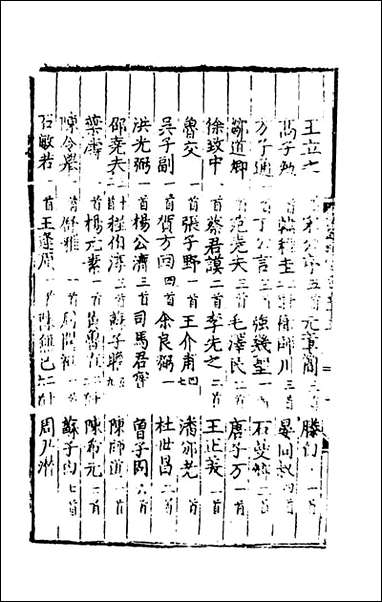 王立之 宋公序五首元章簡三首滕 一首
徐師川三首晏同叔四首
方子通一首丁公言三首強幾聖一首石曼卿二首
鄒道卿一首范堯夫三首毛澤民二首唐子方一首
徐致中一首蔡君謨二首李先之二首王正美一首
魯交一首張子野一首王介甫四潘邠老一首
吳子副一首賀方回四首余良弼一首杜世昌二首
洪光弼一首楊公濟三首司馬君實曾子固六首
邵堯夫二十首程伯淳三首蘇子瞻陳師道一首
葉濤一首楊元素一首黃魯直陳希元二首
陳令舉一首舒雅一首 一首蘇子由七首
石敏若一首王逢原一首陳 已二首周